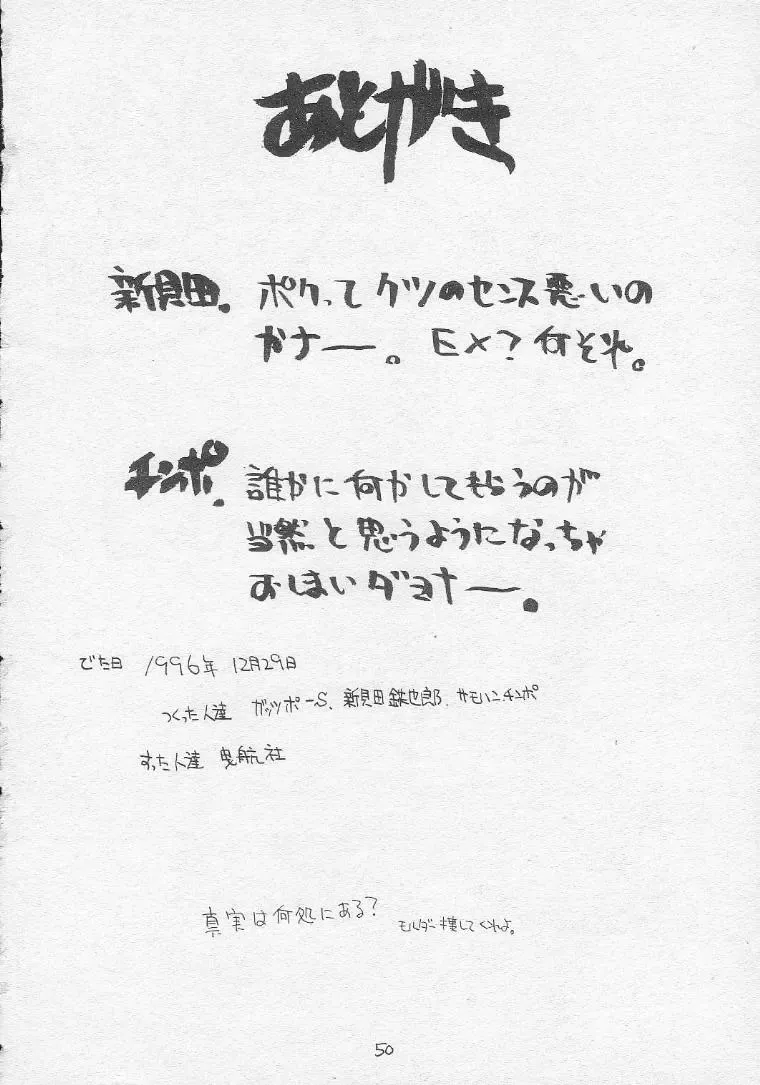 あとがき
新貝田。ボクってクツのセンス悪いの
カナー。EX？何それ。
チンポ。誰かに何かしてもらうのが
当然と思うようになっちゃ
おしまいダヨナー。
でた日 1996年12月29日
つくった人達 ガッツポーS、新貝田鉄也郎、サモハンチンポ
すった人達 曳航社
真実は何処にある?
モルダー してくれよ。
50